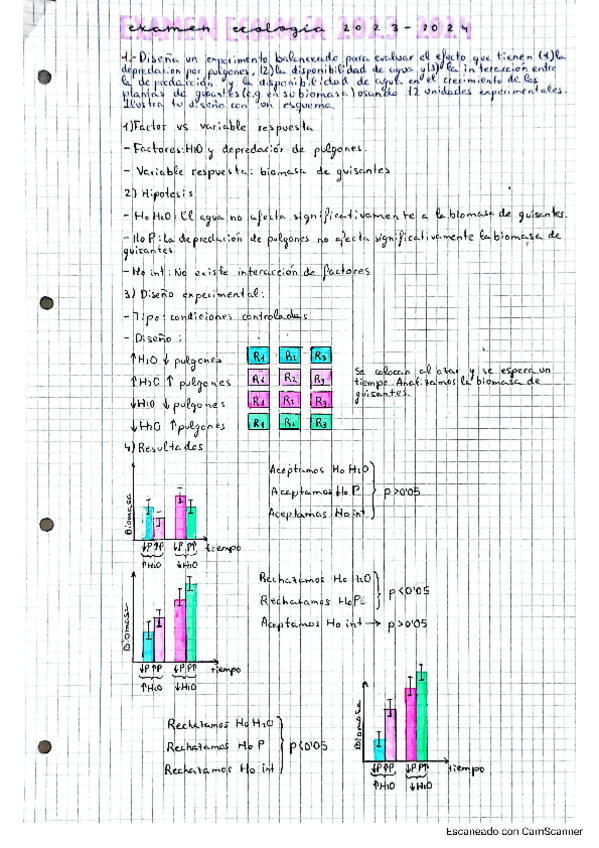 examen ecología 2023-2024
1.- Diseña un experimento balanceado para evaluar el efecto que tienen (1) la
depredación por pulgones, (2) la disponibilidad de agua y (3) la interacción entre
la depredación y la disponibilidad de agua en el crecimiento de las
plantas de guisantes (e.g en su biomasa) usando 12 unidades experimentales.
Ilustra tu diseño con un esquema.
1) Factor vs variable respuesta
- Factores: H2O y depredación de pulgones.
- Variable respuesta: biomasa de guisantes
2) Hipotesis
- Ho H2O: El agua no afecta significativamente a la biomasa de guisantes.
- Ho P: La depredación de pulgones no afecta significativamente la biomasa de
guisantes
- Ho int: No existe interacción de factores
3) Diseño experimental:
- Tipo: condiciones controladas
- Diseño:
↑H2O ↓ pulgones R1 R2 R3
↑H2O ↑ pulgones R1 R2 R3
↓H2O ↓ pulgones R1 R2 R3
↓H2O ↑ pulgones R1 R2 R3
Se colocan al azar y se espera un
tiempo. Analizamos la biomasa de
guisantes.
4) Resultados
Biomasa
↓P ↑P ↓P P↑ tiempo
↑H2O ↓H2O
Aceptamos Ho H2O
Aceptamos Ho P p>0'05
Aceptamos Ho int
Biomasa
↓P ↑P ↓P P↑ tiempo
↑H2O ↓H2O
Rechazamos Ho H2O
Rechazamos Ho P p<0'05
Aceptamos Ho int → p>0'05
Rechazamos Ho H2O
Rechazamos Ho P p<0'05
Rechazamos Ho int
Biomasa
↓P ↑P ↓P P↑ tiempo
↑H2O ↓H2O
Escaneado con CamScanner